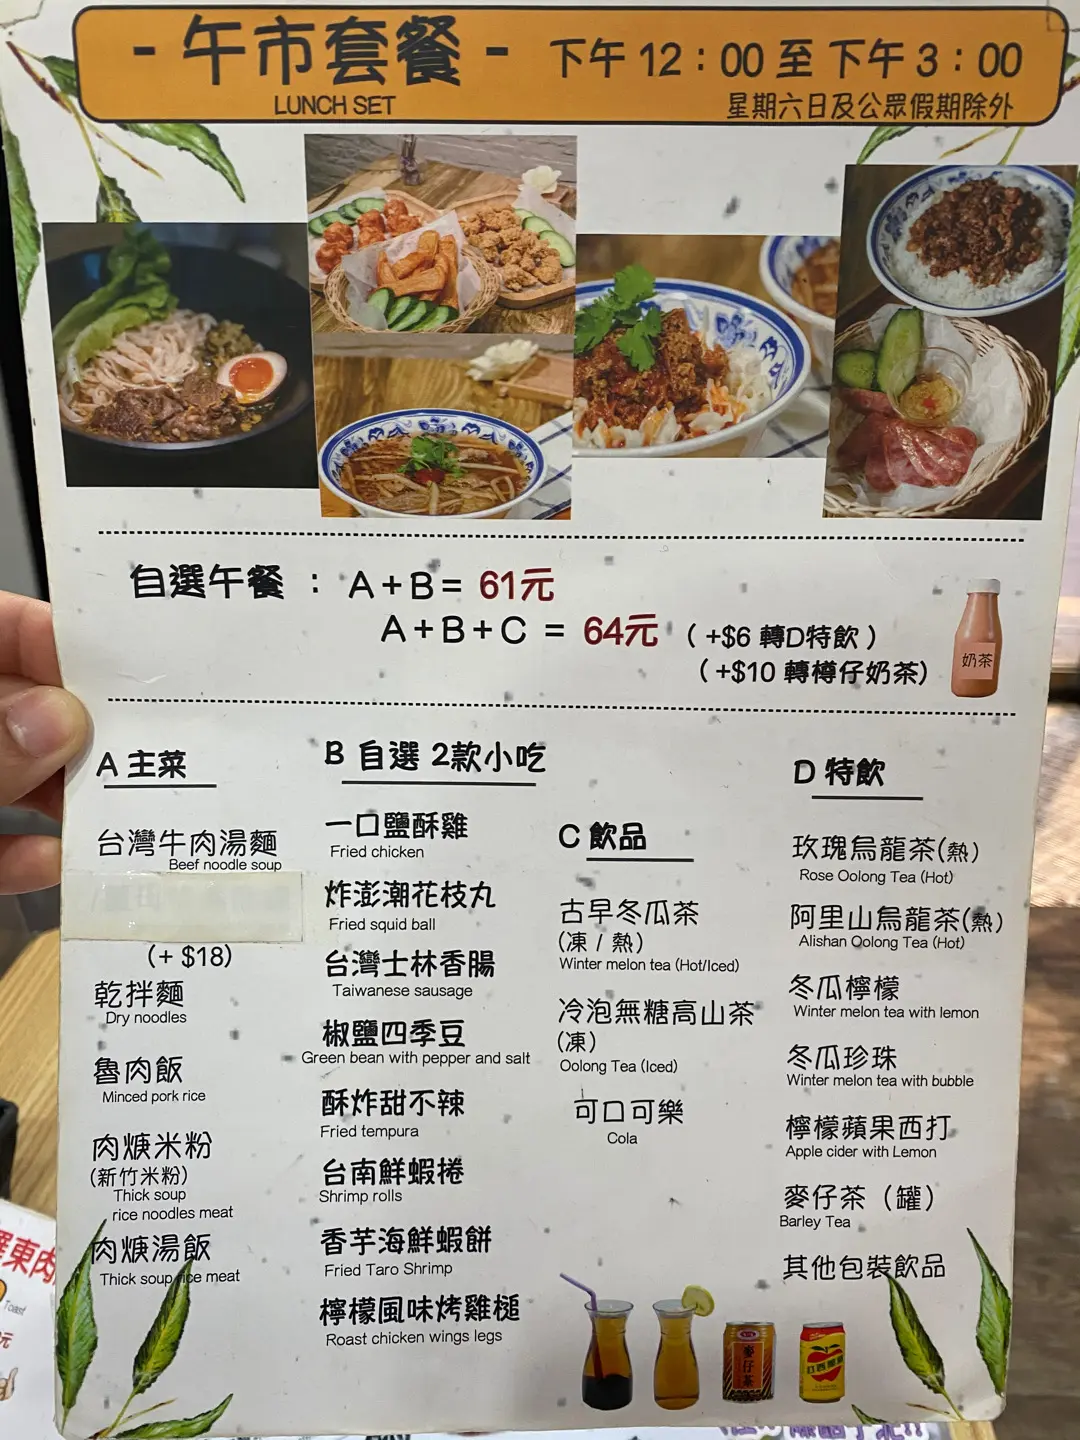 - 午市套餐 -
LUNCH SET
下午 12 : 00 至 下午 3 : 00
星期六日及公眾假期除外
自選午餐 : A + B = 61元
A + B + C = 64元 ( +$6 轉D特飲 )
( +$10 轉樽仔奶茶)
奶茶
A 主菜
台灣牛肉湯麵
Beef noodle soup
(+ $18)
乾拌麵
Dry noodles
魯肉飯
Minced pork rice
肉焿米粉
(新竹米粉)
Thick soup
rice noodles meat
肉焿湯飯
Thick soup rice meat
B 自選 2款小吃
一口鹽酥雞
Fried chicken
炸澎潮花枝丸
Fried squid ball
台灣士林香腸
Taiwanese sausage
椒鹽四季豆
Green bean with pepper and salt
酥炸甜不辣
Fried tempura
台南鮮蝦捲
Shrimp rolls
香芋海鮮蝦餅
Fried Taro Shrimp
檸檬風味烤雞槌
Roast chicken wings legs
C 飲品
古早冬瓜茶
(凍 / 熱)
Winter melon tea (Hot/Iced)
冷泡無糖高山茶
(凍)
Oolong Tea (Iced)
可口可樂
Cola
D 特飲
玫瑰烏龍茶(熱)
Rose Oolong Tea (Hot)
阿里山烏龍茶(熱)
Alishan Oolong Tea (Hot)
冬瓜檸檬
Winter melon tea with lemon
冬瓜珍珠
Winter melon tea with bubble
檸檬蘋果西打
Apple cider with Lemon
麥仔茶 (罐)
Barley Tea
其他包裝飲品
麥仔茶
東肉
Toast
元